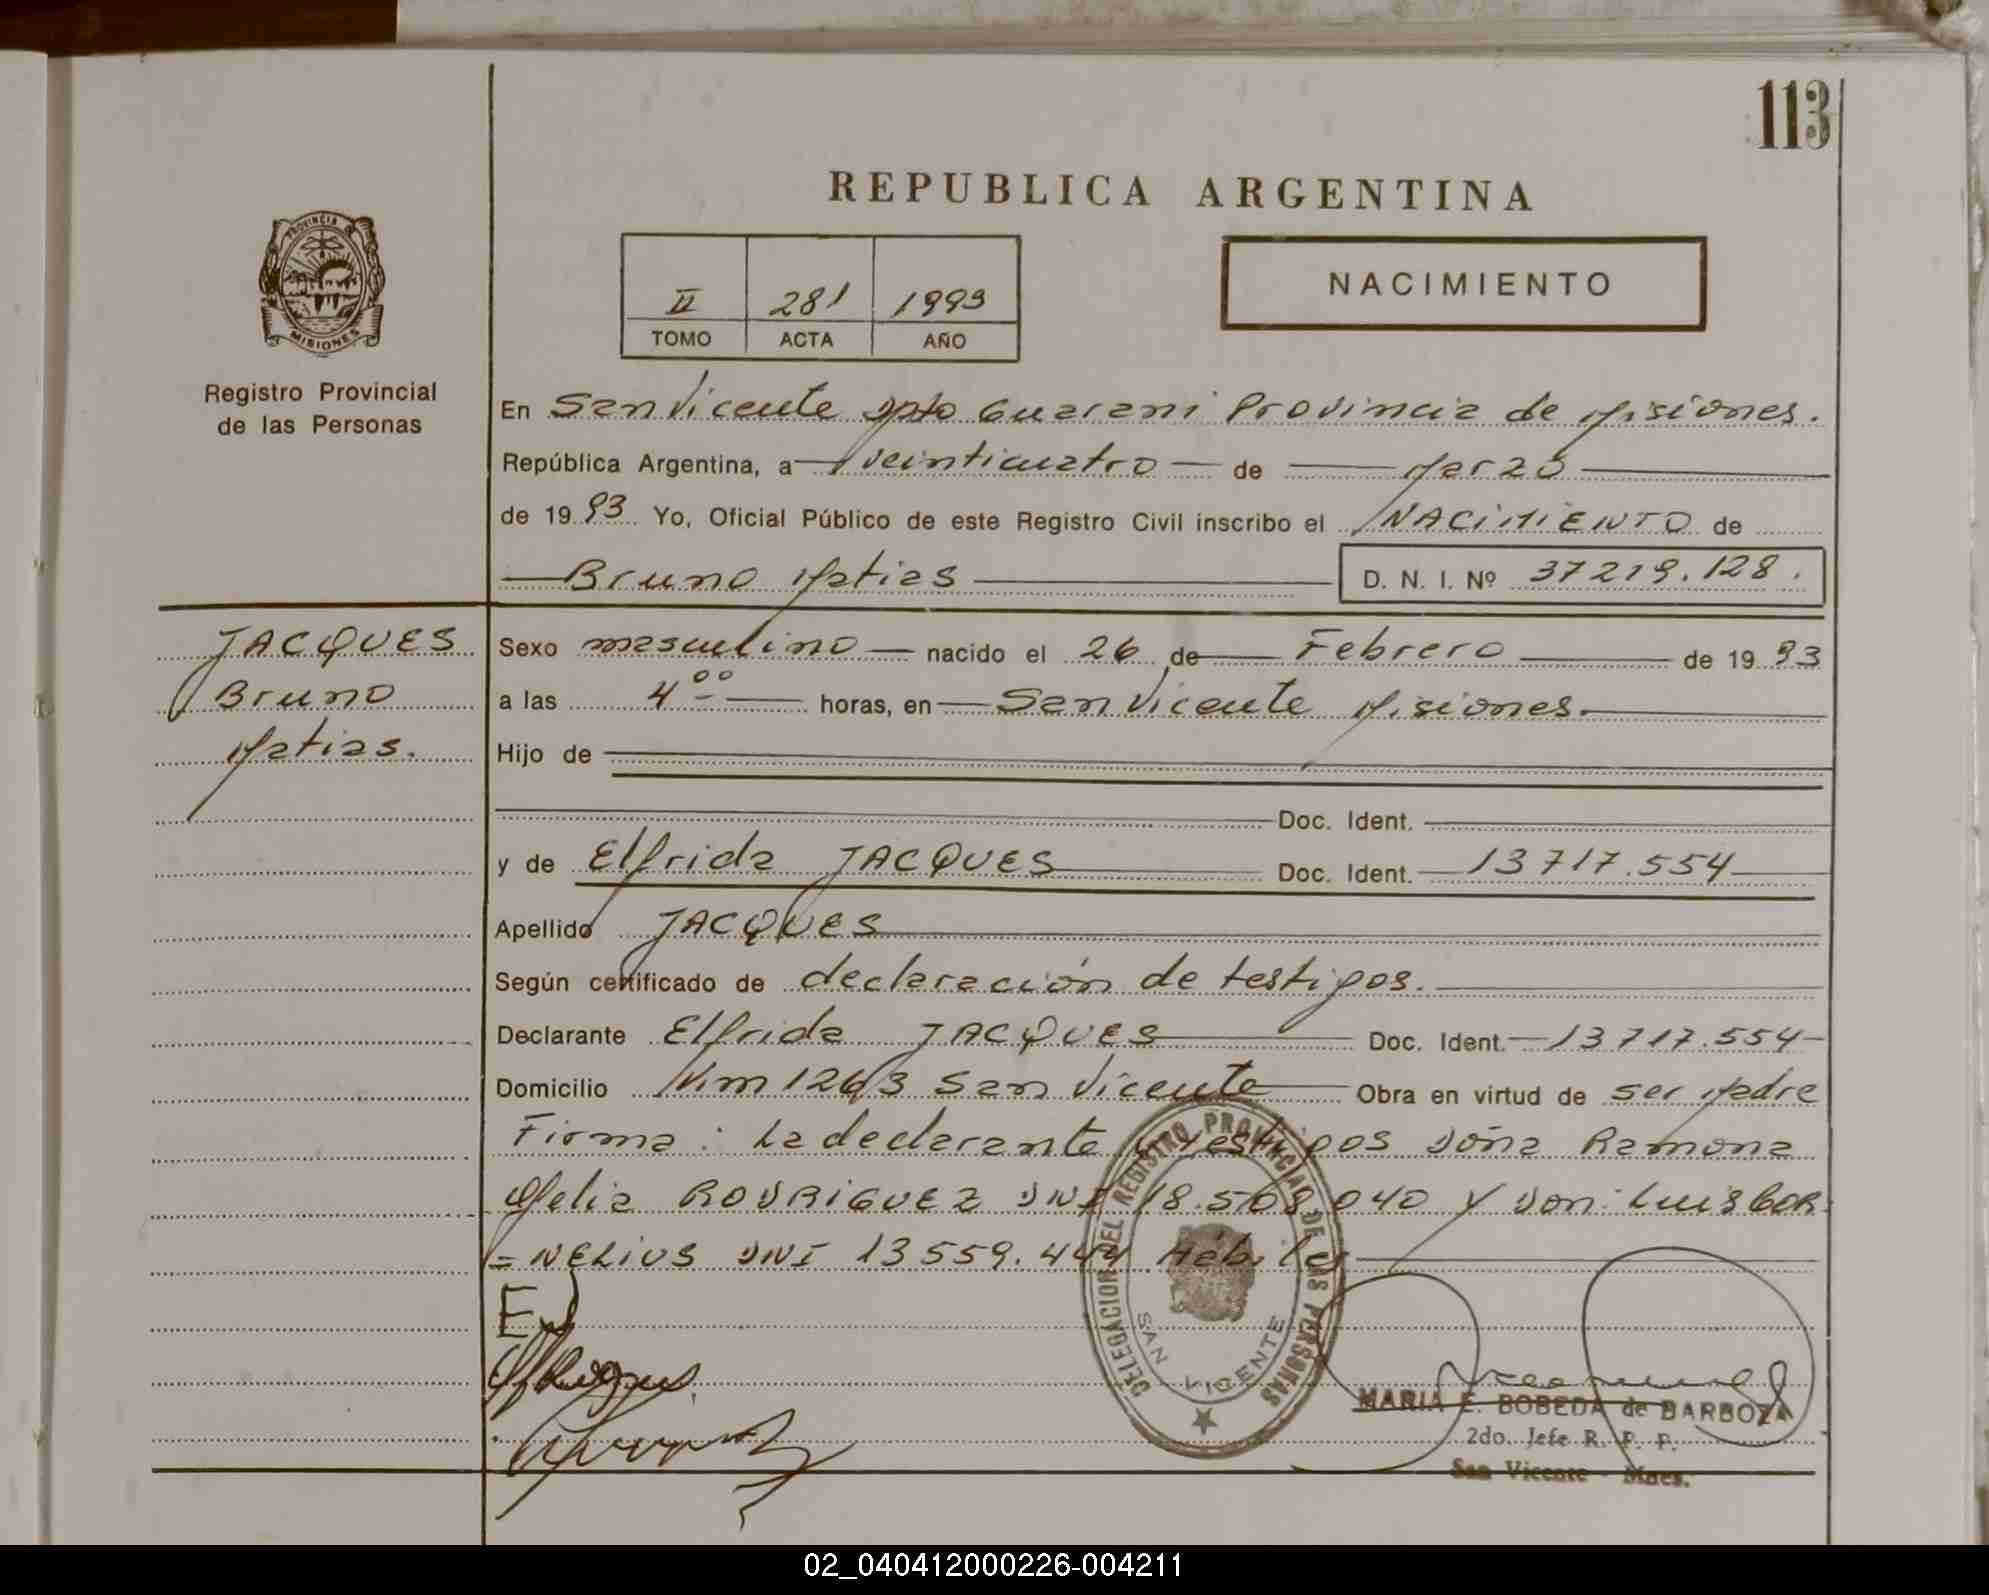 113
REPUBLICA ARGENTINA
PROVINCIA
MISIONES
II 281 1993
TOMO ACTA AÑO
NACIMIENTO
Registro Provincial
de las Personas
En San Vicente Dpto Guarani Provincia de Misiones.
República Argentina, a veinticuatro de Marzo
de 1993 Yo, Oficial Público de este Registro Civil inscribo el NACIMIENTO de
Bruno Matias D. N. I. Nº 37219.128.
JACQUES
Bruno
Matias.
Sexo masculino nacido el 26 de Febrero de 1993
a las 4 00 horas, en San Vicente Misiones.
Hijo de
Doc. Ident.
y de Elfrida JACQUES Doc. Ident. 13717.554
Apellido JACQUES
Según certificado de declaración de testigos.
Declarante Elfrida JACQUES Doc. Ident. 13717.554
Domicilio Km 1263 San Vicente Obra en virtud de ser Madre
Firma: La declarante y testigos Doña Ramona
Ofelia RODRIGUEZ DNI 18.508.040 Y Don: Luis COR
=NELIUS DNI 13559.444 Hábiles
EJ
DELEGACION DEL REGISTRO PROVINCIAL DE LAS PERSONAS
SAN VICENTE
MARIA E. BOBEDA de BARBOZA
2do. Jefe R. P. P.
San Vicente - Mnes.
02_040412000226-004211